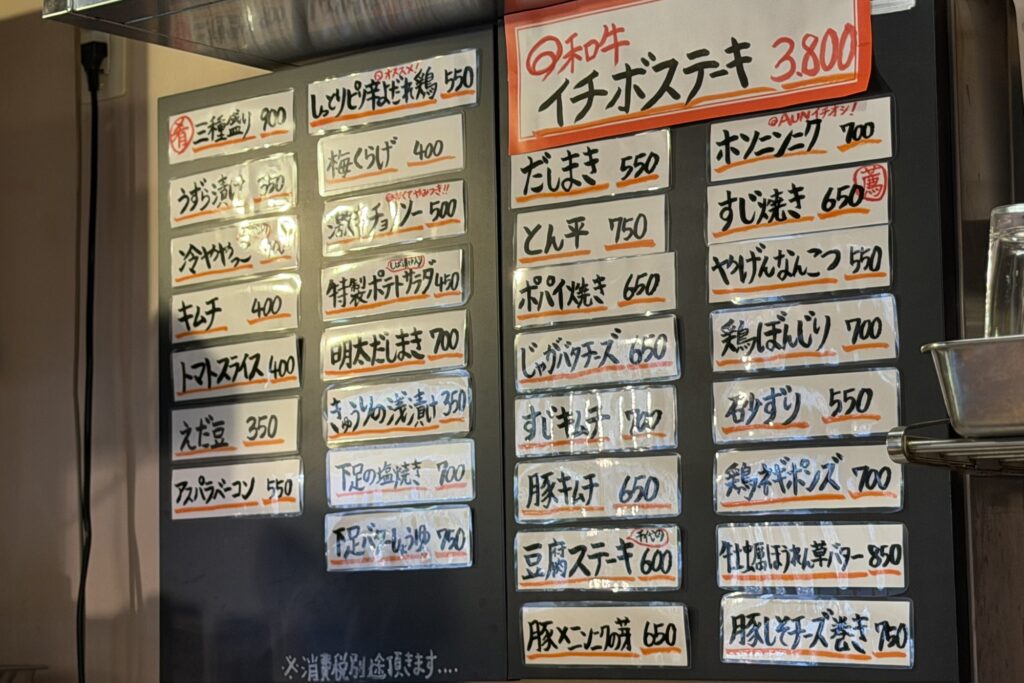 肴 三種盛り 900
うずら漬け 350
冷ややっこ
キムチ 400
トマトスライス 400
えだ豆 350
アスパラベーコン 550
オススメ!
しっとりピリ辛よだれ鶏 550
梅くらげ 400
辛くてやみつき!!
激辛チョリソー 500
しば漬け入り
特製ポテトサラダ 450
明太だしまき 700
きゅうりの浅漬け 350
下足の塩焼き 700
下足バターしょうゆ 750
※消費税別途頂きます....
和牛
イチボステーキ 3.800
だしまき 550
とん平 750
ポパイ焼き 650
じゃがバタチーズ 650
すじキムチー 700
豚キムチ 650
豆腐ステーキ 600
豚×ニンニクの芽 650
AUNイチオシ!
ホソニンニク 700
すじ焼き 650 薦
やげんなんこつ 550
鶏ぼんじり 700
砂ずり 550
鶏ネギポンズ 700
牡蠣ほうれん草バター 850
豚しそチーズ巻き 750